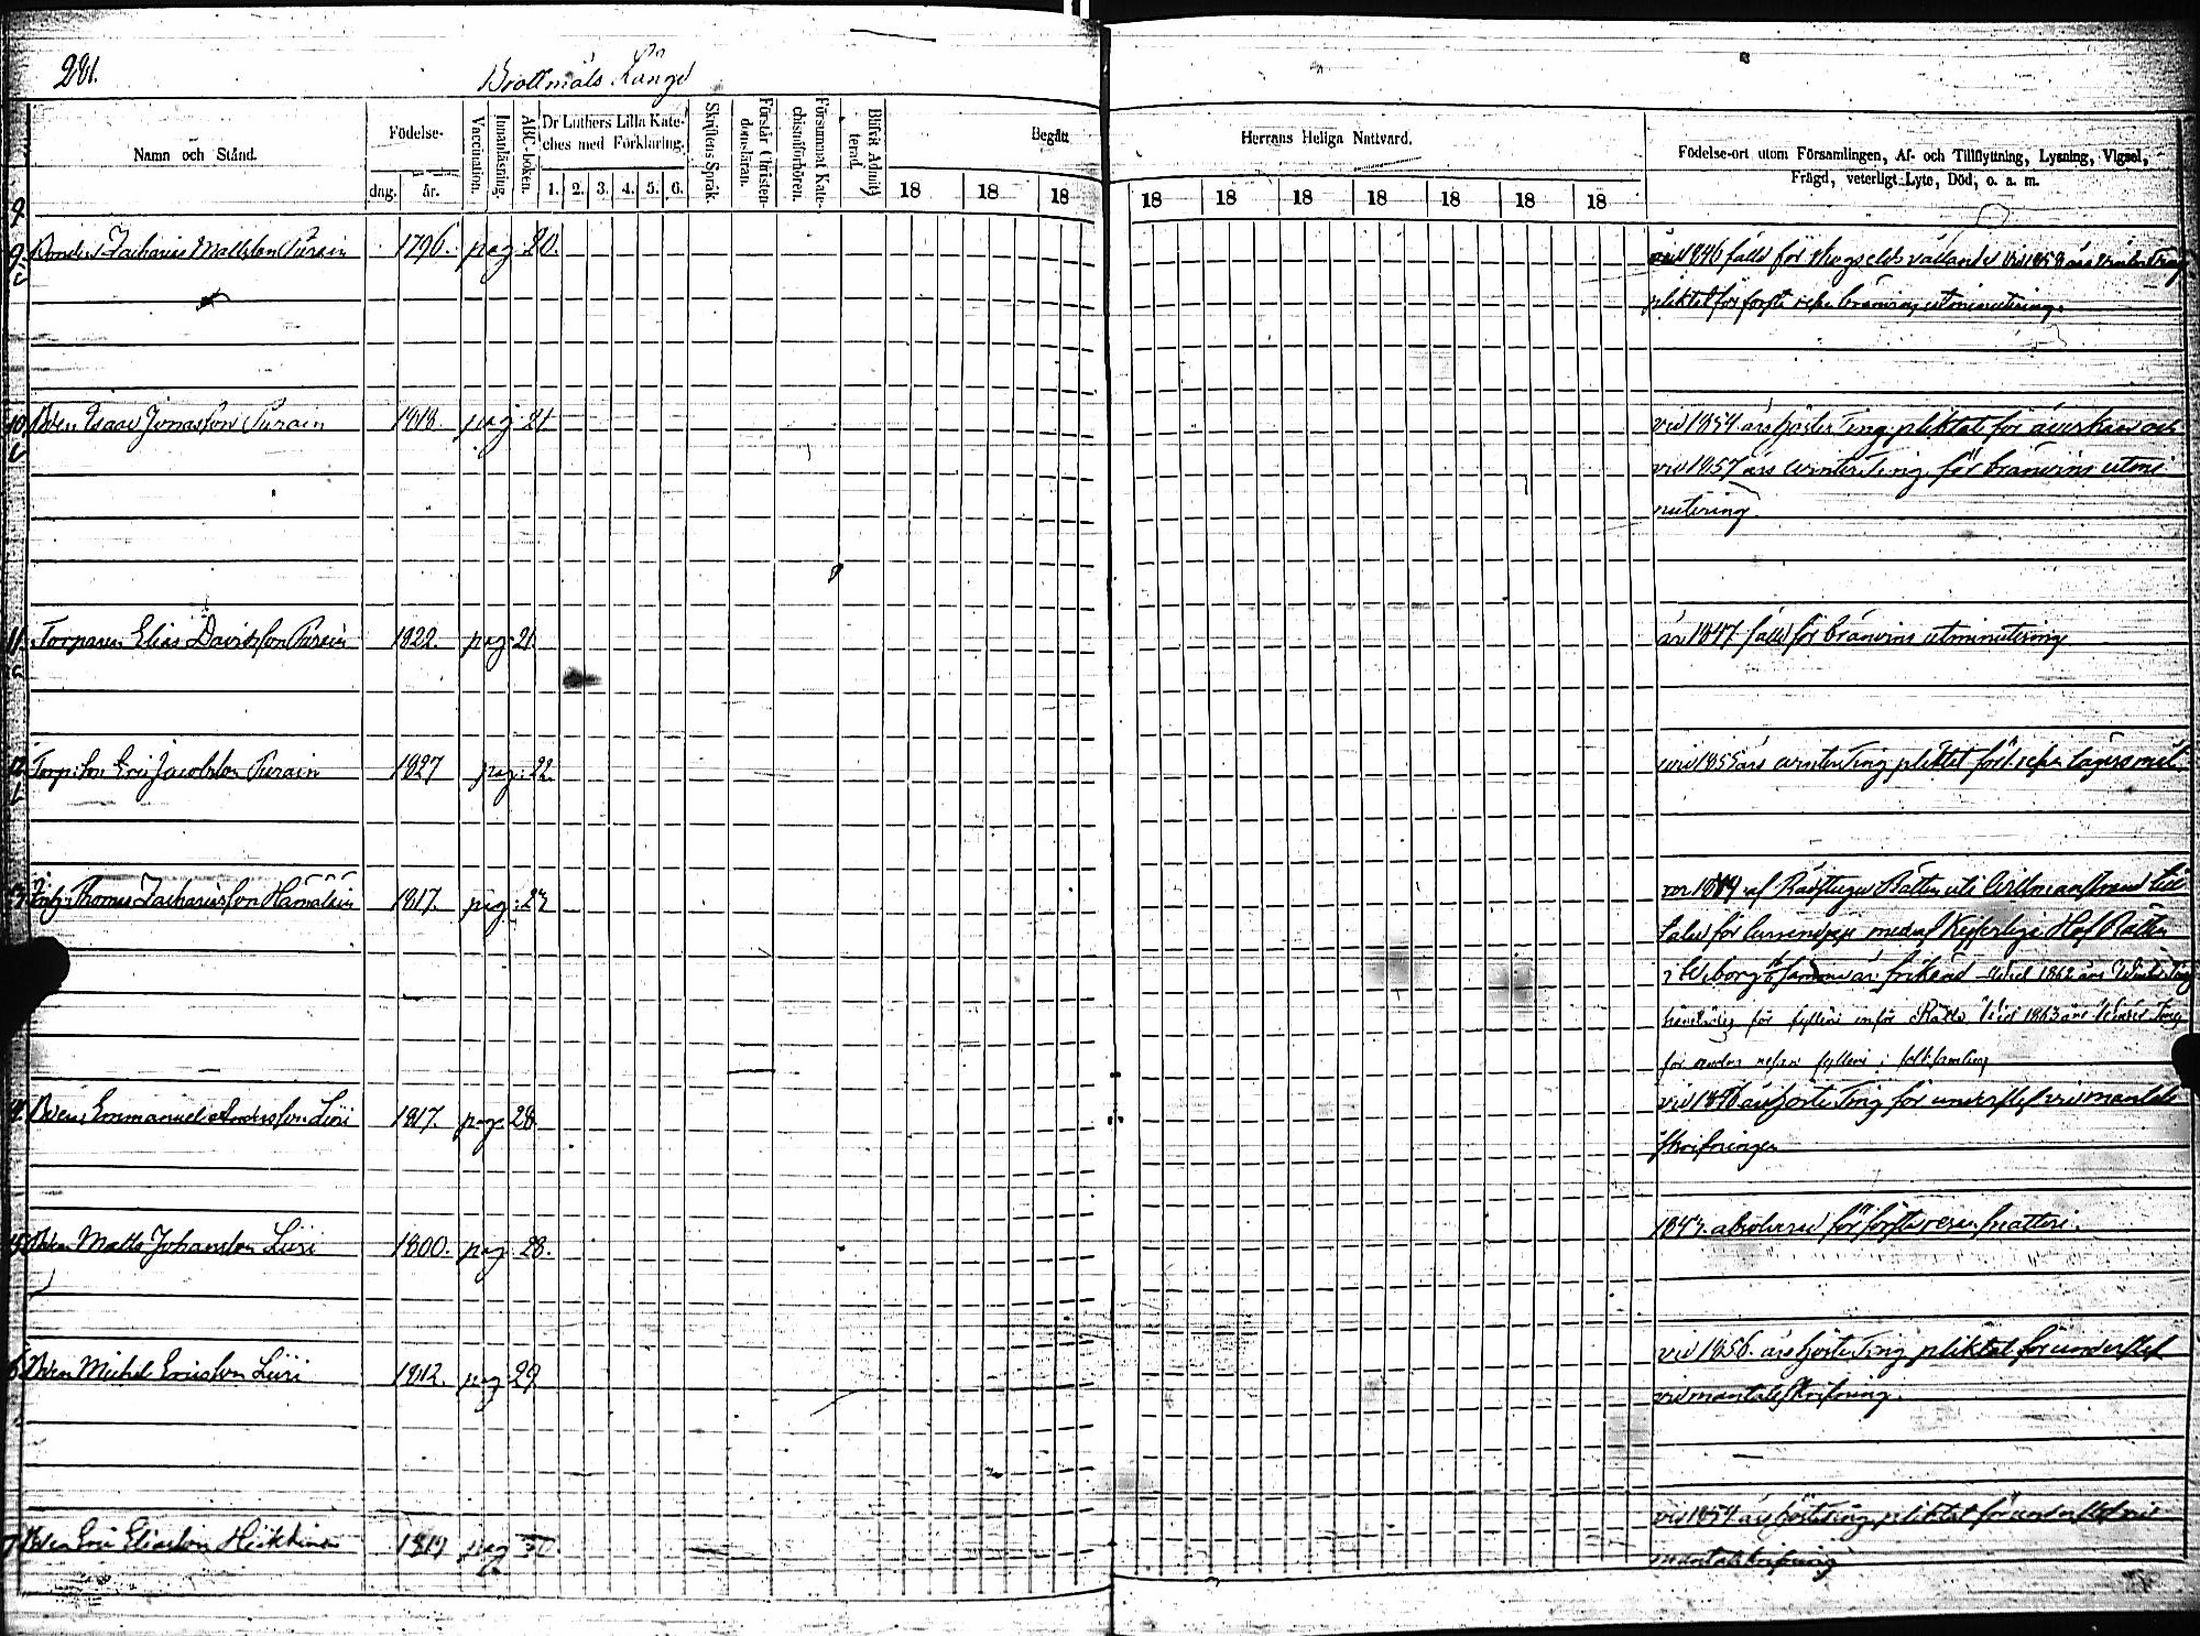 281.
Brottmåls Längd
Namn och Stånd.
Födelse-
dag.
år.
Vaccination.
Innanläsning.
ABC-boken.
Dr Luthers Lilla Kate-
ches med Förklaring.
1. 2. 3. 4. 5. 6.
Skriftens Språk.
Förstår Christen-
domsläran.
Försummat Kate-
chismiförhören.
Blifvit Admit-
terad.
Begått
Herrans Heliga Nattvard.
18 18 18 18 18 18 18 18 18 18
Födelse-ort utom Församlingen, Af- och Tillflyttning, Lysning, Vigsel,
Frägd, veterligt Lyte, Död, o. a. m.
9. Bonden Zacharias Mattsson Purain 1796. pag: 20. 1846 fälld för skogselds vållande vid 1858 års
pliktat för första resan bränvins utminutering.
10 Isaac Jonasson Purain 1818. pag: 21 vid 1854 års Höste Ting pliktat för åverkan och
vid 1857 års winter Ting för bränvins utmi
nutering.
11. Torparen Elias Davidsson Purain 1822. pag: 21. år 1847 fälld för bränvins utminutering
12. Torp.son Eric Jacobsson Purain 1827 pag: 22. vid 1855 års winter Ting pliktat för 1 resan lägersmål
13. Thomas Zachariasson Hämäläin 1817. pag: 27 af Rådstugu Rätten uti Willmanstrand till
talad för men af Kejserliga Hof Rätten
i Wiborg samma år frikänd Vid 1862 års Winter Ting
för fylleri inför Rätta. Vid 1863 års Winter Ting
för andra resan fylleri i
14. Emmanuel Andersson Liiri 1817. pag: 28 års Höste Ting för underslef vid mantals
skrifningen
15. Matts Johansson Liiri 1800. pag: 28. absolverad för första resan snatteri.
16 Michel Ericsson Liiri 1812. pag: 29 vid 1856 års Höste Ting pliktat för underslef
vid mantals skrifning.
17 Eric Eliasson Heikkinen 1819 pag: 30 vid 1854 års Höste Ting pliktat för underslef vid
mantalsskrifning